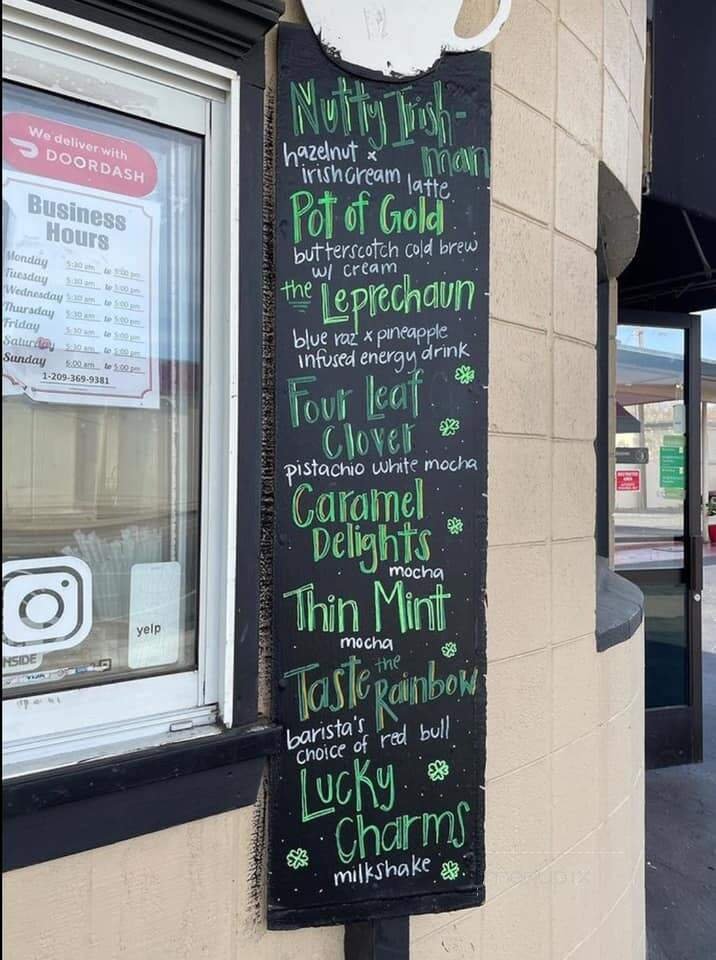 We deliver with
DOORDASH
Business
Hours
Monday 5:30 am to 5:00 pm
Tuesday 5:30 am to 5:00 pm
Wednesday 5:30 am to 5:00 pm
Thursday 5:30 am to 5:00 pm
Friday 5:30 am to 5:00 pm
Saturday 5:30 am to 5:00 pm
Sunday 6:00 am to 5:00 pm
1-209-369-9381
yelp
Nutty Irish-
man
hazelnut x
irish cream latte
Pot of Gold
butterscotch cold brew
w/ cream
the Leprechaun
blue raz x pineapple
infused energy drink
Four Leaf
Clover
pistachio white mocha
Caramel
Delights
mocha
Thin Mint
mocha
Taste the
Rainbow
barista's
choice of red bull
Lucky
Charms
milkshake